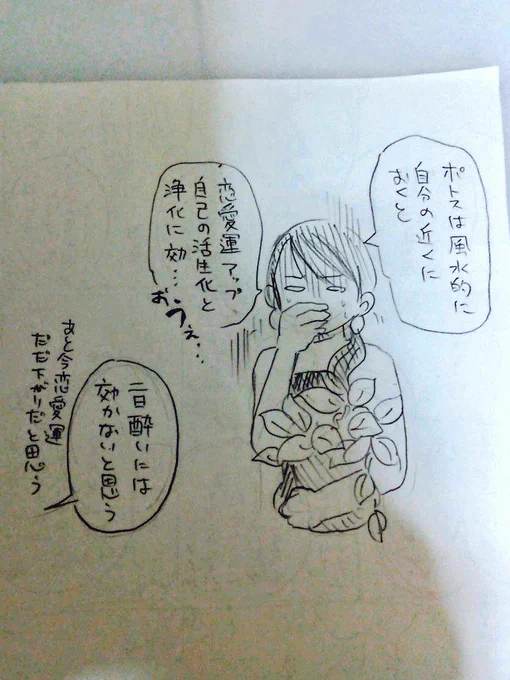 ポトスは風水的に
自分の近くに
おくと
恋愛運アップ
自己の活生化と
浄化に効…
おうぇ…
二日酔いには
効かないと思う
あと今恋愛運
だだ下がりだと思う